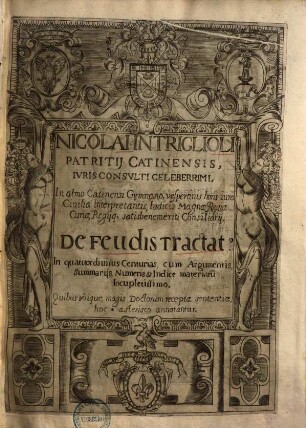 NICOLAI INTRIGLIOLI
PATRITIJ CATINENSIS,
IVRIS CONSVLTI CELEBERRIMI,
In almo Catinensi Gymnasio, vespertinis horis iura
Civilia interpretantis, Iudicis Magnæ Regiæ
Curiæ, Regijq; satis benemeriti Consiliarij,
De Feudis Tractat9
In quatuor divisus Centurias, cum Argumentis
Summarijs, Numeris & Indice materiarū
locupletissimo.
Quibus ubique, magis Doctorum recepta sententia,
hoc * asterisco annotatur.